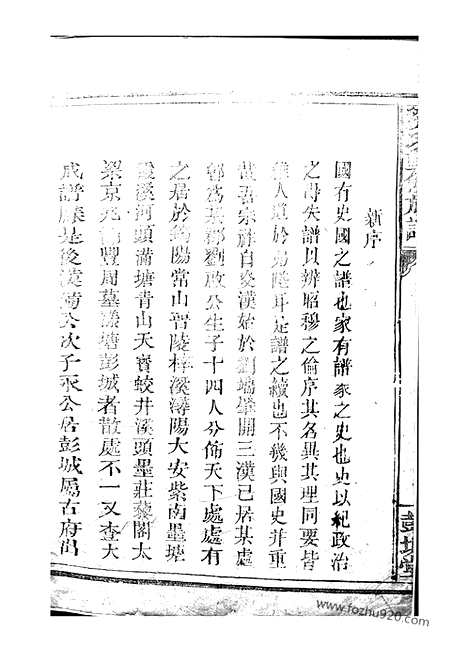 新序
國有史國之譜也家有譜家之史也史以紀政治
之得失譜以辨昭穆之倫序其名異其理同要皆
人道於 是譜之續也不幾與國史并重
哉吾宗雜自炎漢始於劉端肇開三漢已居某處
郡為某郡劉啟公生子十四人分佈天下處處有
之居於 陽常山晉陵梓溪潯陽大安紫南墨塘
溪河頭滿塘青山天寶蛟井溪頭墨莊藜閣太
梁京兆 豐周墓漾塘彭城者散處不一又查大
成譜牒是後漢 公次子永公居彭城屬古府尚
族譜
彭城堂
www.fozhu920.com